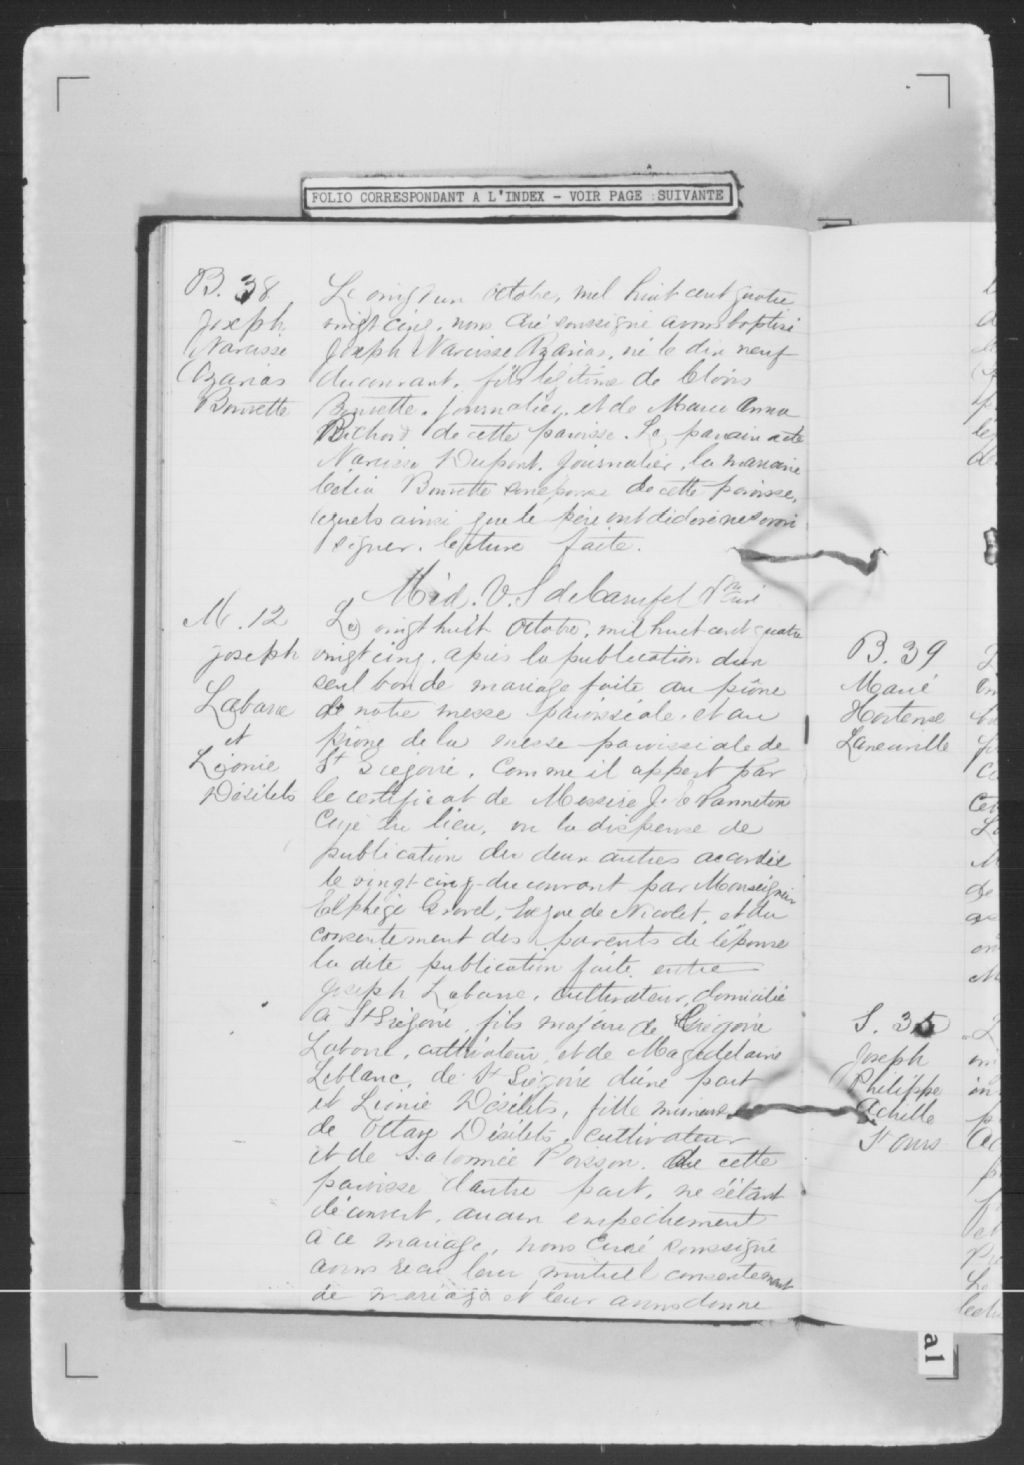 FOLIO CORRESPONDANT A L'INDEX - VOIR PAGE SUIVANTE
B. 38
Joseph
Narcisse
Azarias
Bourette
Le vingt un octobre, mil huit cent quatre
vingt cinq, nous curé soussigné avons baptisé
Joseph Narcisse Azarias, né le dix neuf
du courant, fils légitime de Clovis
Bourette, journalier, et de Marie Anna
Richard de cette paroisse. Le parrain a été
Narcisse Dupont, journalier, la marraine
Célia Bourette son épouse de cette paroisse,
lequels ainsi que le père ont déclaré ne savoir
signer. lecture faite.
Méd. V. S de Carufel Ptre curé
M. 12
Joseph
Labarre
et
Léonie
Désilets
Le vingt huit Octobre, mil huit cent quatre
vingt cinq, après la publication d'un
seul ban de mariage faite au prône
de notre messe paroissiale, et au
prône de la messe paroissiale de
St Grégoire, comme il appert par
le certificat de Messire J. E Panneton
Curé du lieu, vu la dispense de
publication des deux autres accordée
le vingt-cinq du courant par Monseigneur
Elphège Gravel, Évêque de Nicolet, et du
consentement des parents de l'épouse
la dite publication faite entre
Joseph Labarre, cultivateur, domicilié
à St Grégoire, fils majeur de Grégoire
Labarre, cultivateur, et de Magdelaine
Leblanc, de St Grégoire d'une part
et Léonie Désilets, fille mineure
de Désilets, cultivateur
et de Salomée Poisson de cette
paroisse d'autre part, ne s'étant
découvert, aucun empêchement
à ce mariage, nous Curé soussigné
avons reçu leur mutuel consentement
de mariage et leur avons donné
B. 39
Marie
Hortense
Laneuville
S. 35
Joseph
Philippe
Achille
St Ours
al